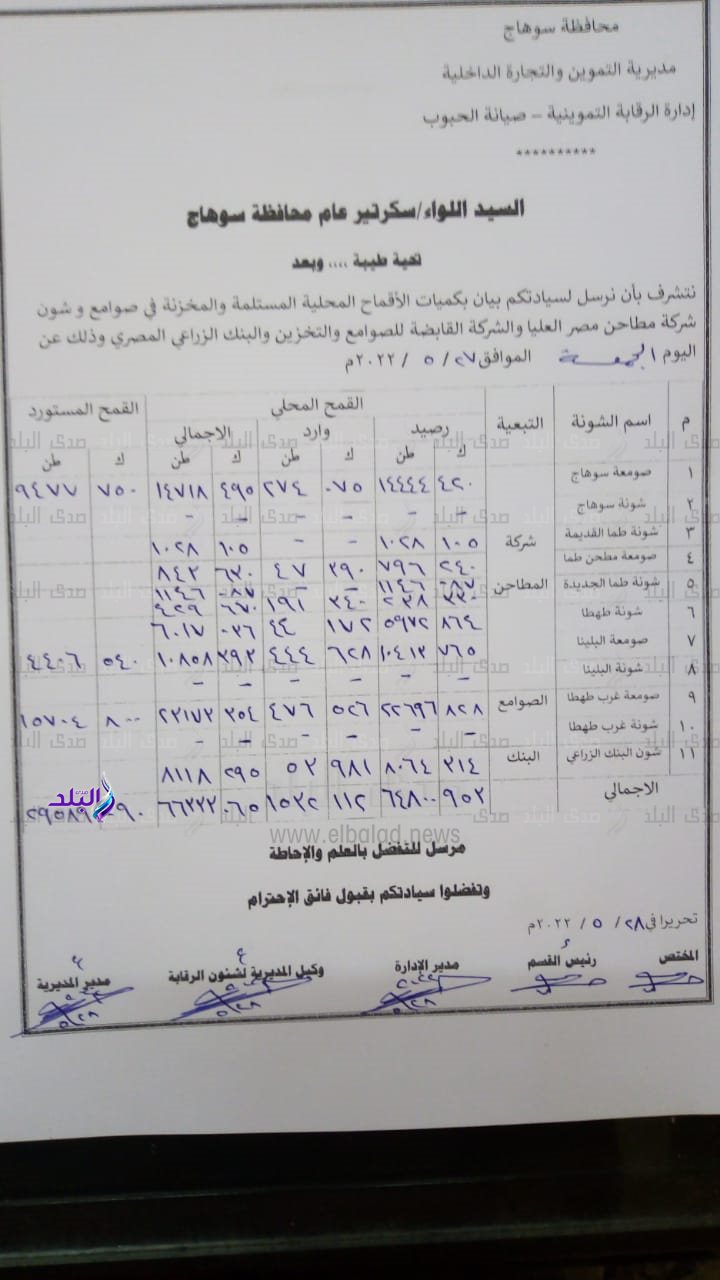 محافظة سوهاج
مديرية التموين والتجارة الداخلية
إدارة الرقابة التموينية – صيانة الحبوب
**********
السيد اللواء/سكرتير عام محافظة سوهاج
تحية طيبة .... وبعد
نتشرف بأن نرسل لسيادتكم بيان بكميات الأقماح المحلية المستلمة والمخزنة في صوامع و شون
شركة مطاحن مصر العليا والشركة القابضة للصوامع والتخزين والبنك الزراعي المصري وذلك عن
اليوم الجمعة الموافق ٢٧ / ٥ / ٢٠٢٢م
م اسم الشونة التبعية القمح المحلي القمح المستورد
رصيد وارد الاجمالي
ك طن ك طن ك طن ك طن
١ صومعة سوهاج ٤٢٠ ١٤٤٤٤ ٠٧٥ ٢٧٤ ٤٩٥ ١٤٧١٨ ٧٥٠ ٩٤٧٧
٢ شونة سوهاج – – – – – –
٣ شونة طما القديمة شركة ١٠٥ ١٠٢٨ – – ١٠٥ ١٠٢٨
٤ صومعة مطحن طما ٢٤٠ ٧٩٦ ٣٩٠ ٤٧ ٦٣٠ ٨٤٣
٥ شونة طما الجديدة المطاحن ٠٨٧ ١١٤٦ ٠٨٧ ١١٤٦
٦ شونة طهطا ٣٣٠ ٢٣٨ ٣٤٠ ١٩١ ٦٧٠ ٤٢٩
٧ صومعة البلينا ٨٦٤ ٥٩٧٢ ١٧٢ ٤٤ ٠٣٦ ٦٠١٧
٨ شونة البلينا ٧٦٥ ١٠٤١٣ ٦٢٨ ٤٤٤ ٣٩٣ ١٠٨٥٨ ٥٤٠ ٤٤٠٦
– – – – – –
٩ صومعة غرب طهطا الصوامع ٨٢٨ ٢٢٦٩٦ ٥٢٦ ٤٧٦ ٣٥٤ ٢٣١٧٣ ٨٠٠ ١٥٧٠٤
١٠ شونة غرب طهطا – – – – – –
١١ شون البنك الزراعي البنك ٣١٤ ٨٠٦٤ ٩٨١ ٥٣ ٢٩٥ ٨١١٨
الاجمالي ٩٥٣ ٦٤٨٠٠ ١١٢ ١٥٣٢ ٠٦٥ ٦٦٣٣٣ ٠٩٠ ٢٩٥٨٩
صدى البلد
www.elbalad.news
مرسل للتفضل بالعلم والإحاطة
وتفضلوا سيادتكم بقبول فائق الإحترام
تحريرا في ٢٨ / ٥ / ٢٠٢٢م
المختص رئيس القسم مدير الإدارة وكيل المديرية لشئون الرقابة مدير المديرية